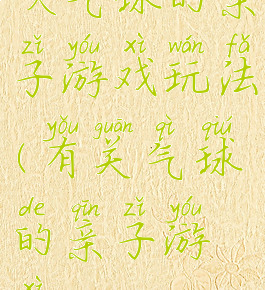 关气球的亲
zǐ yóu xì wán fǎ
子游戏玩法
yǒu guān qì qiú
(有关气球
de qīn zǐ yóu
的亲子游
xì